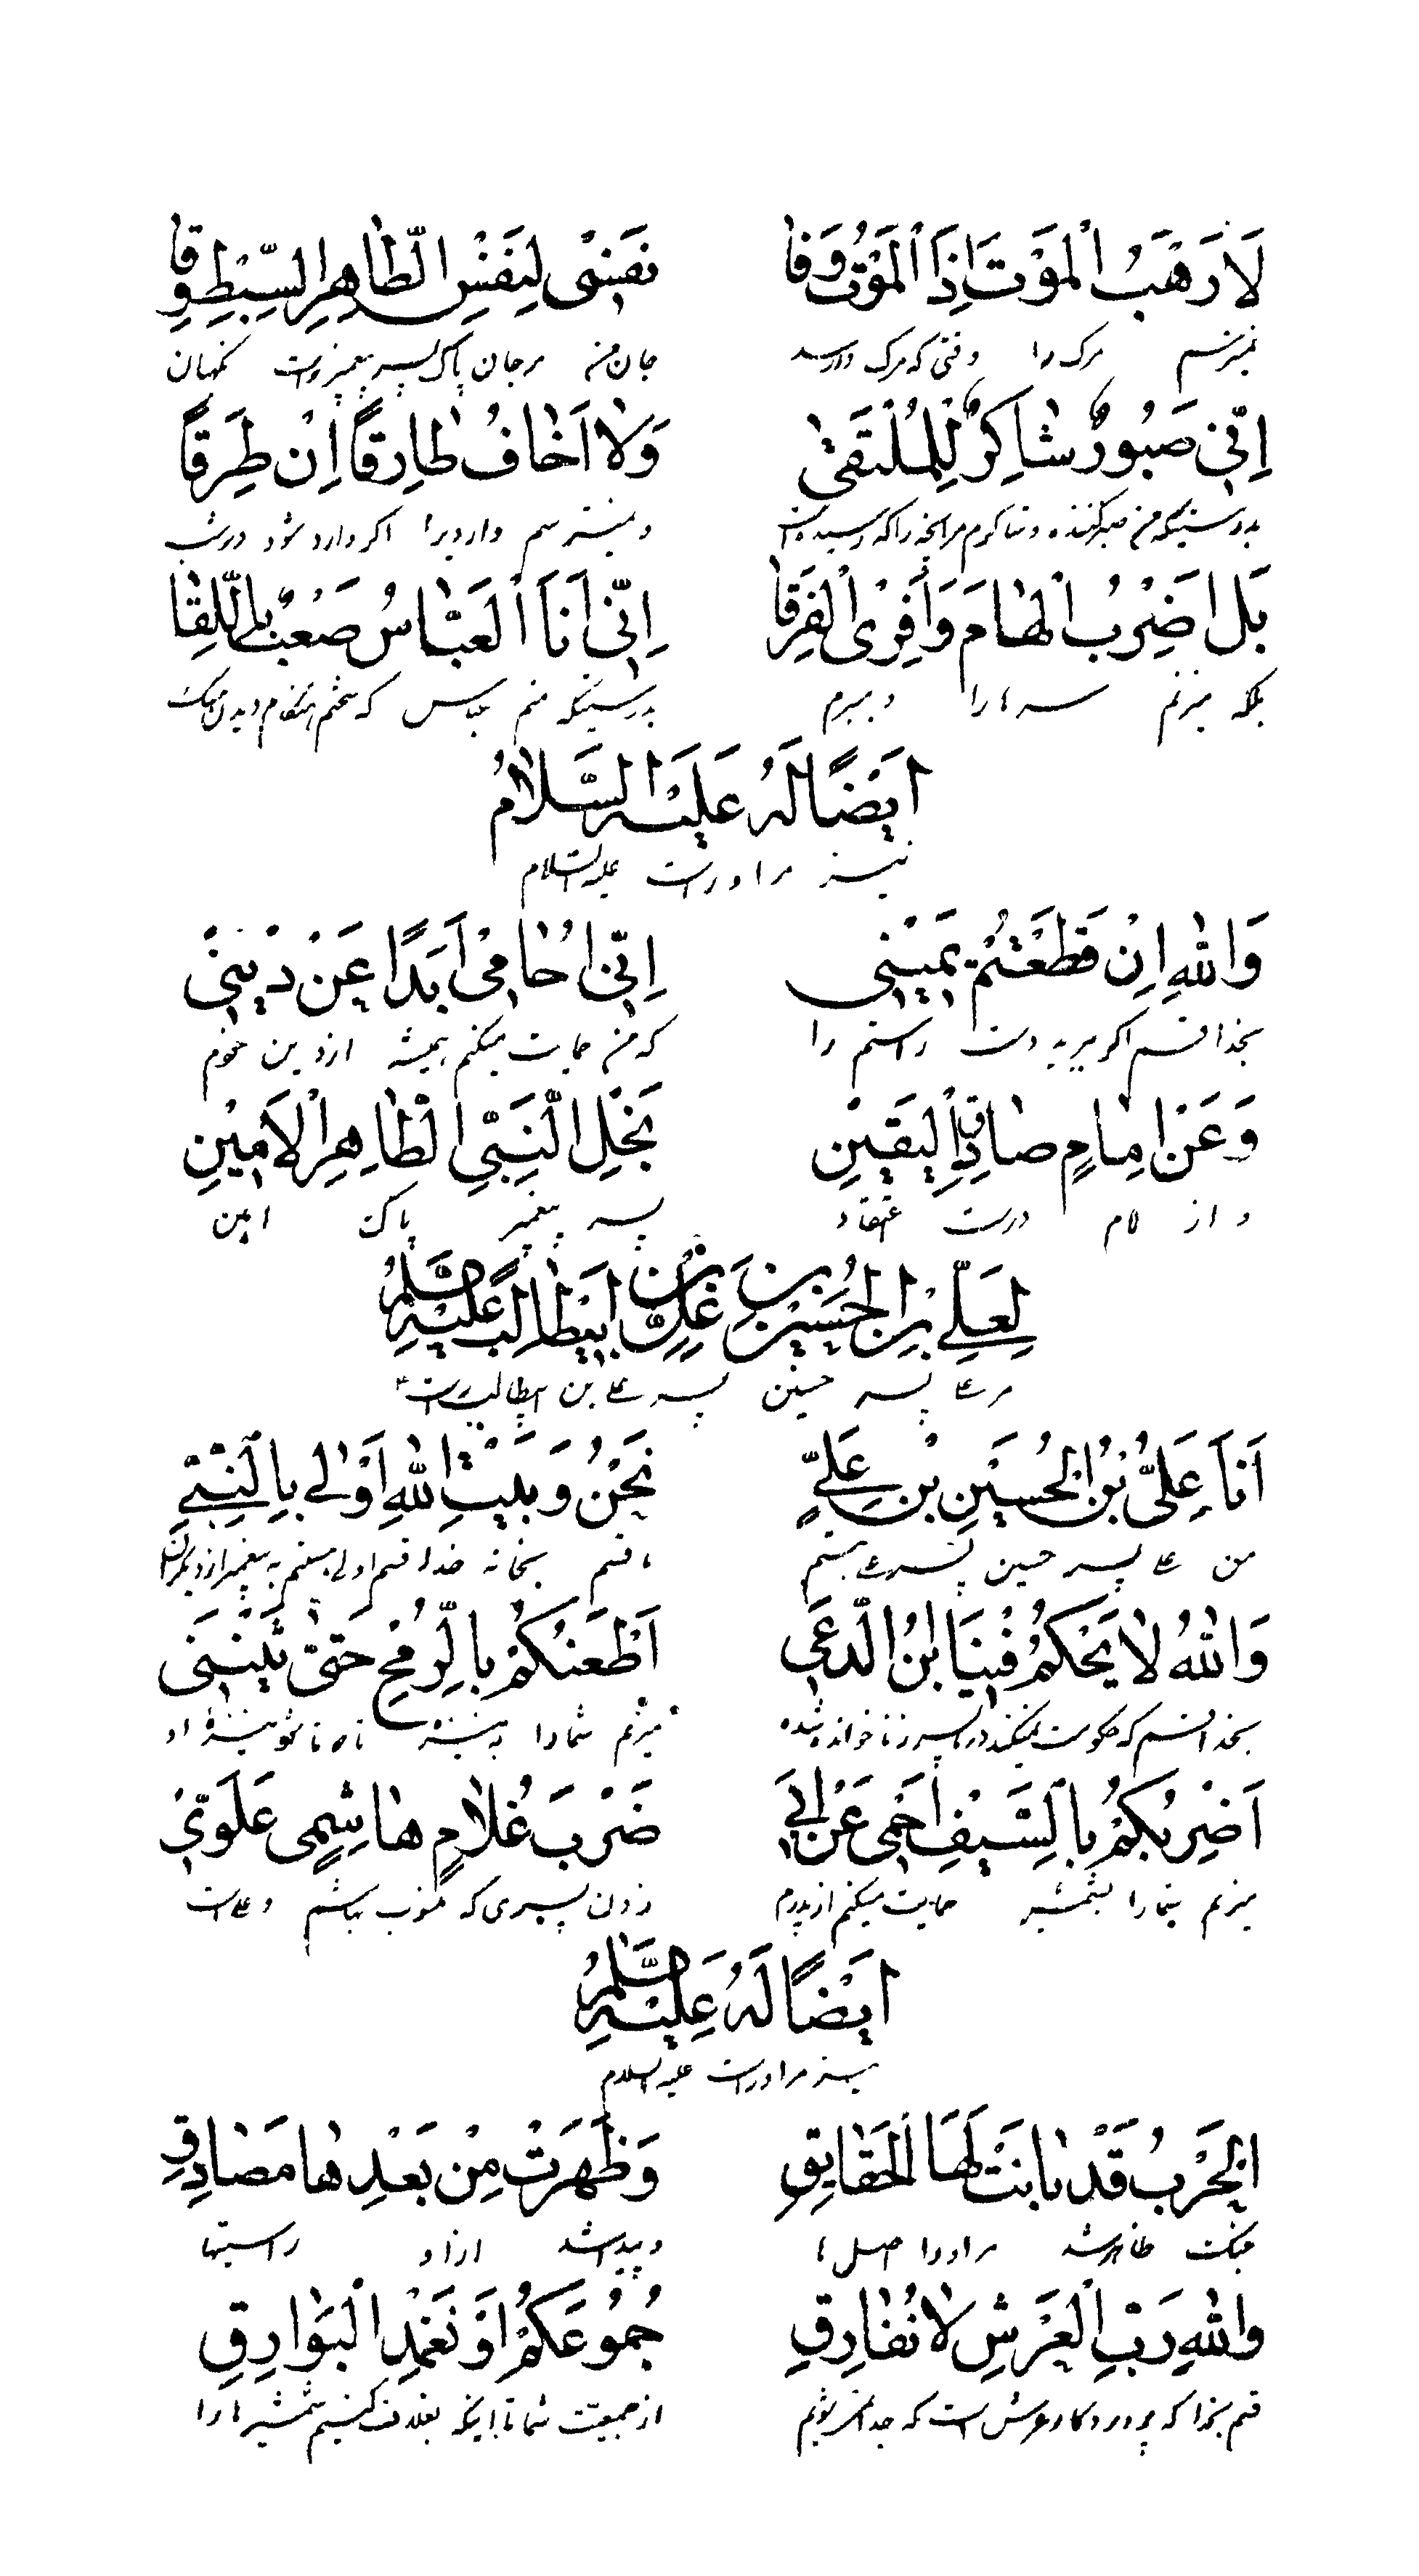 لَا اَرْهَبُ الْمَوْتَ اِذَا الْمَوْتُ وَقَا نَفْسِیْ لِنَفْسِ الطَّاهِرِ السِّبْطِ وِقَا
نمیترسم مرک را وقتی که مرک وارسد جان من مرجان پاک پسر پیغمبر راست نکهبان
اِنِّیْ صَبُورٌ شَاكِرٌ لِلْمُلْتَقیٰ وَلَا اَخَافُ طَارِقًا اِنْ طَرِقًا
بدرستیکه من صبرکننده و شاکرم مرانچه را که رسیدنی است و نمیترسم واردیرا اکر وارد شود درشب
بَلْ اَضْرِبُ الْهَامَ وَاَفْرِی الْفَرِقَا اِنِّیْ اَنَا الْعَبَّاسُ صَعْبٌ بِاللِّقَا
بلکه میزنم سرها را و میبرم بدرستیکه منم عباس که سختم هنکام دیدن
اَیْضًا لَهُ عَلَیْهِ السَّلَامُ
نیز مر اوراست علیه السلام
وَاللهِ اِنْ قَطَعْتُمْ یَمِیْنِی اِنِّیْ اُحَامِیْ اَبَدًا عَنْ دِیْنِیْ
بخدا قسم اکر ببرید دست راستم را که من حمایت میکنم همیشه از دین خودم
وَعَنْ اِمَامٍ صَادِقِ الْیَقِیْنِ نَجْلِ النَّبِیِّ الطَّاهِرِ الْاَمِیْنِ
و از امام درست اعتقاد پسر پیغمبر پاک امین
لِعَلِیِّ بْنِ الْحُسَیْنِ بْنِ عَلِیِّ بْنِ اَبِیْطَالِبٍ عَلَیْهِ السَّلَامُ
مر علے پسر حسین پسر علے بن ابیطالب راست
اَنَا عَلِیُّ بْنُ الْحُسَیْنِ بْنِ عَلِیٍّ نَحْنُ وَبَیْتِ اللهِ اَوْلٰی بِالنَّبِیِّ
من علے پسر حسین پسر علے هستم ما قسم بخانه خدا قسم اولی هستیم به پیغمبر از دیکران
وَاللهُ لَا یَحْكُمُ فِیْنَا ابْنُ الدَّعِی اَطْعَنُكُمْ بِالرُّمْحِ حَتّٰی یَنْثَنِی
بخدا قسم که حکومت نمیکند در ما پسر زنا خوانده شده میزنم شما را به نیزه تا
اَضْرِبُكُمْ بِالسَّیْفِ اَحْمِی عَنْ اَبِی ضَرْبَ غُلَامٍ هَاشِمِیٍ عَلَوِیِّ
میزنم شما را بشمشیر حمایت میکنم از پدرم زدن پسری که منسوب بهاشم و علے است
اَیْضًا لَهُ عَلَیْهِ السَّلَامُ
نیز مر اوراست علیه السلام
اَلْحَرْبُ قَدْ بَانَتْ لَهَا الْحَقَایِقِ وَظَهَرَتْ مِنْ بَعْدِهَا مَصَادِقِ
جنکست ظاهر شد مر اورا اصل ها و پیدا شد از او راستیها
وَاللهِ رَبِّ الْعَرْشِ لَا نُفَارِقِ جُمُوعَكُمْ اَوْ نَغْمِدِ الْبَوَارِقِ
قسم بخدا که پروردکار عرش است که جدا نمیشویم از جمعیت شما تا اینکه بغلاف کنیم شمشیرها را